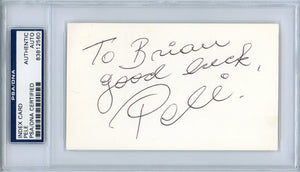 To Brian
good luck,
Pelé.
PSA/DNA
AUTHENTIC
AUTO
83812560
INDEX CARD
PELE
PSA/DNA CERTIFIED